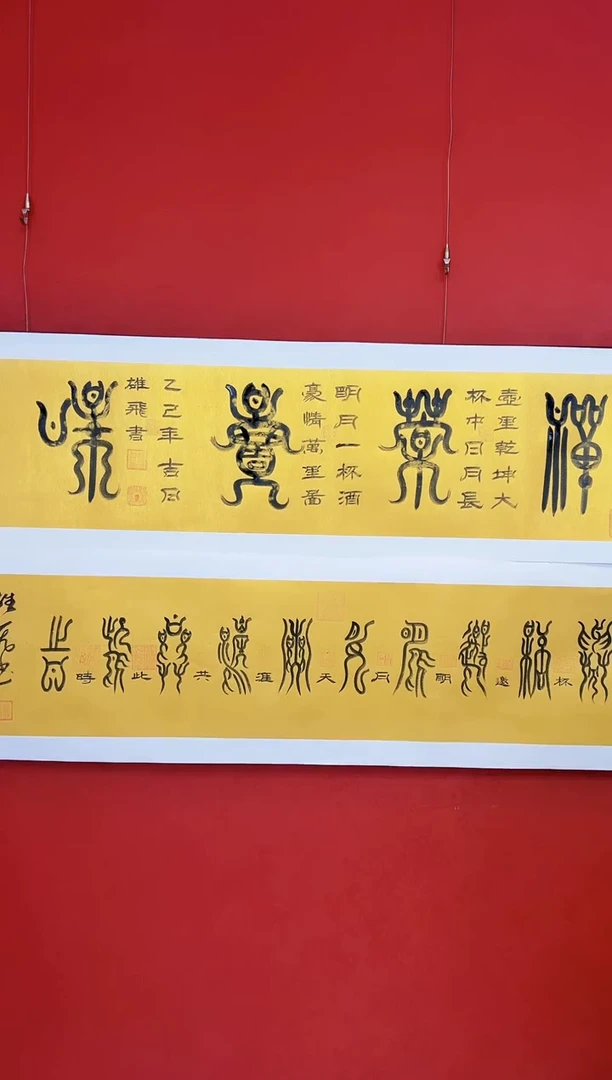 禪
壺里乾坤大
杯中日月長
茶
明月一杯酒
豪情萬里啚
壹
乙巳年 吉日
雄飛書
味
杯邀明月天涯共此時